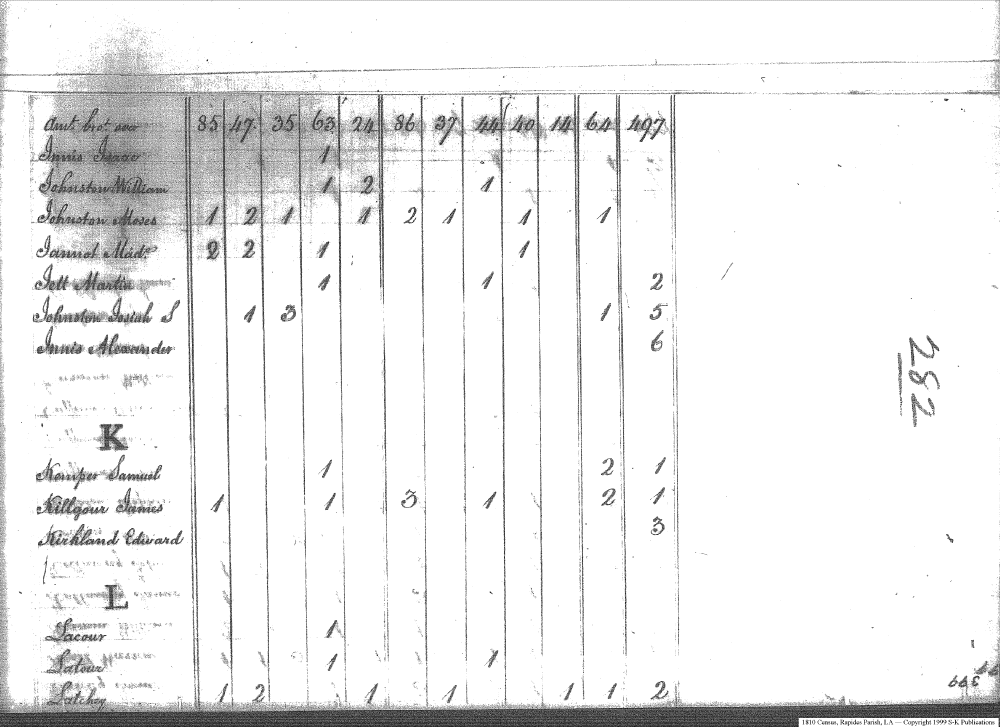 Amt brot over 85 47 35 63 24 86 37 44 40 14 64 497
Innis Isaac 1
Johnston William 1 2 1
Johnston Moses 1 2 1 1 2 1 1 1
Jannot Made 2 2 1 1
Jett Martin 1 1 2
Johnston Josiah S 1 3 1 5
Innis Alexander 6
K
Kemper Samuel 1 2 1
Killgour James 1 1 3 1 2 1
Kirkland Edward 3
L
Lacour 1
Latour 1 1
Latchey 1 2 1 1 1 1 2
282
1810 Census, Rapides Parish, LA — Copyright 1999 S-K Publications